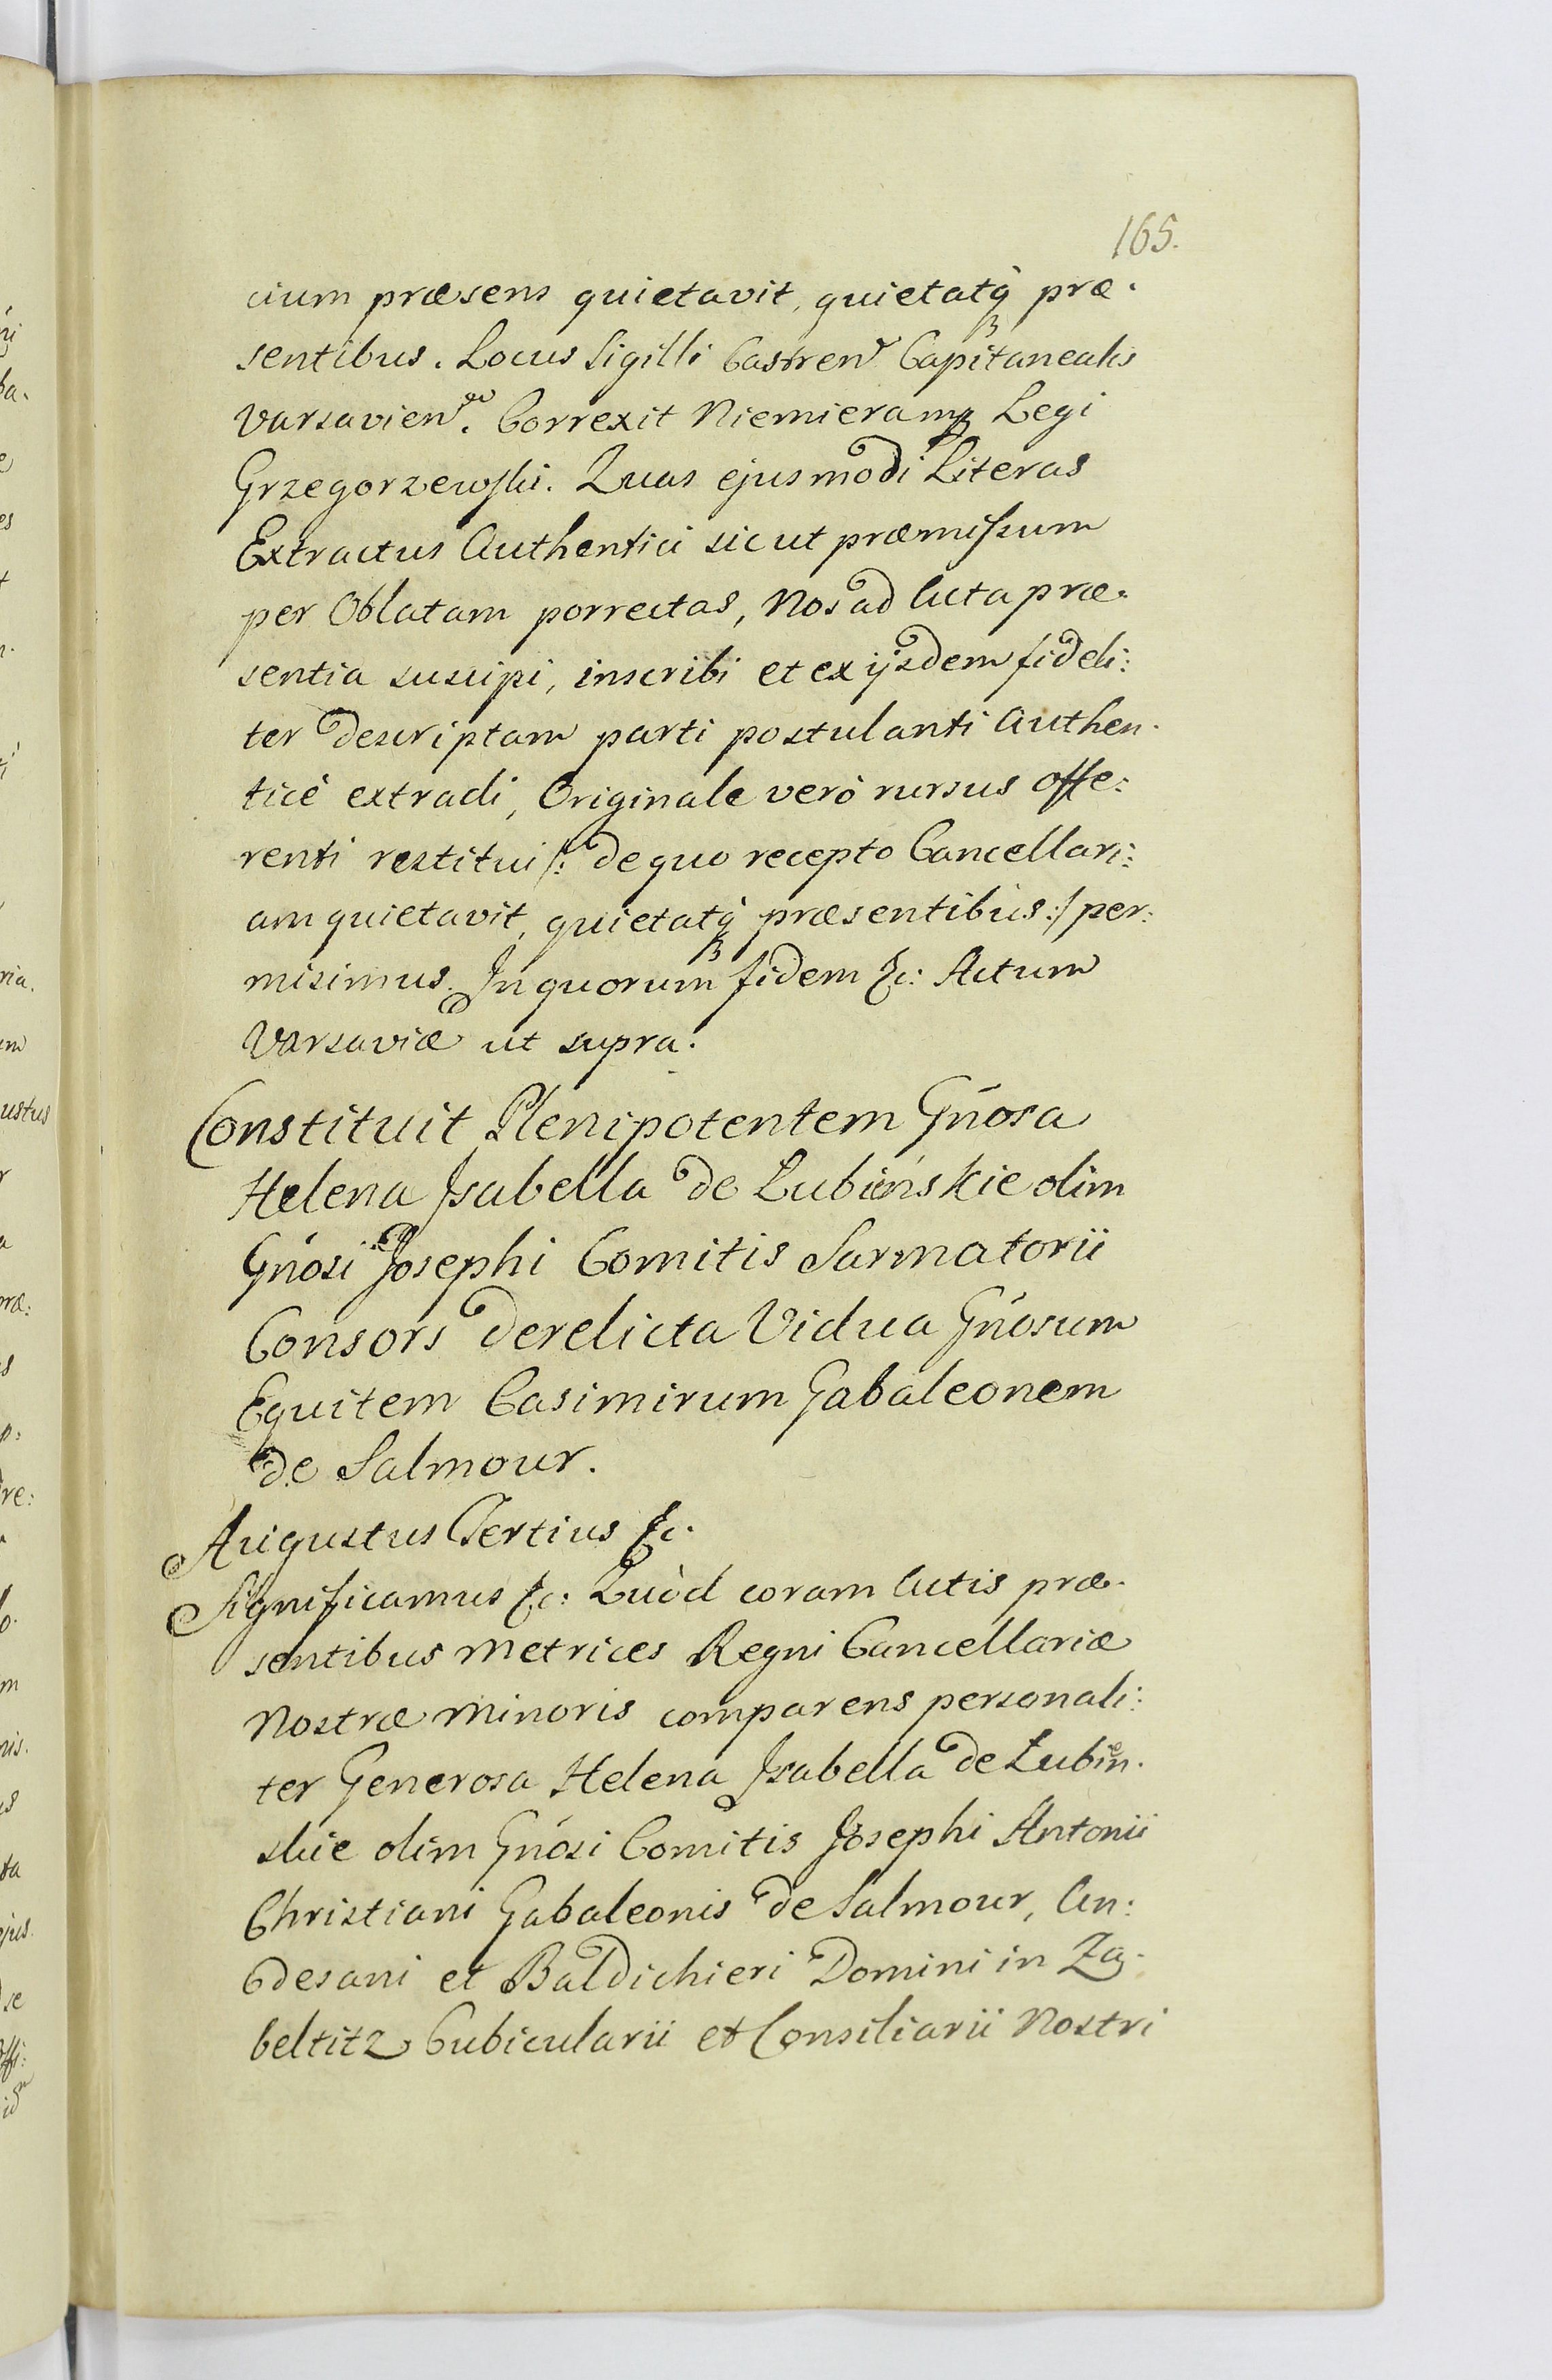 165.
cium præsens quietavit, quietatq præ.
sentibus. Locus Sigilli Castren Capitanealis
Varsavien. Correxit Niemieramp Legi
Grzegorzewski. Quas ejusmodi Literas
Extractus Authentici sicut præmissum
per Oblatam porrectas, Nos ad Acta præ.
sentia suscipi, inscribi et ex ijsdem fideli:
ter descriptam parti postulanti Authen.
ticè extradi, Originale verò rursus offe:
renti restitui /: de quo recepto Cancellari:
am quietavit, quietatq præsentibus :/ per:
misimus. In quorum fidem &c: Actum
Varsaviæ ut supra.
Constituit Plenipotentem Gnosa
Helena Isabella de Łubieńskie olim
Gnosi Josephi Comitis Sarmatorii
Consors derelicta Vidua Gnosum
Equitem Casimirum Gabaleonem
de Salmour.
Augustus Tertius &c.
Significamus &c: Quòd coram Actis præ.
sentibus Metrices Regni Cancellariæ
Nostræ Minoris comparens personali:
ter Generosa Helena Isabella de Łubien.
skie olim Gnosi Comitis Josephi Antonii
Christiani Gabaleonis de Salmour, An:
desani et Baldichieri Domini in Za.
beltitz Cubicularii et Consiliarii Nostri